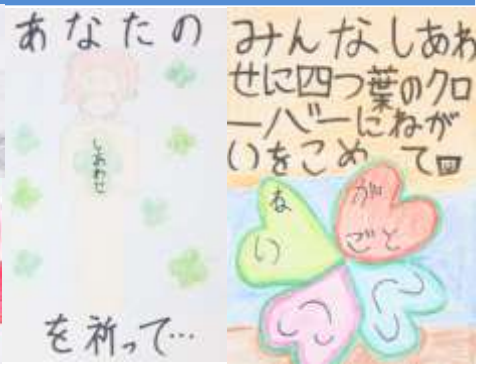 あなたの
しあわせ
を祈って…
みんなしあわ
せに四つ葉のクロ
ーバーにねが
いをこめて
ね
い
がい
ごと